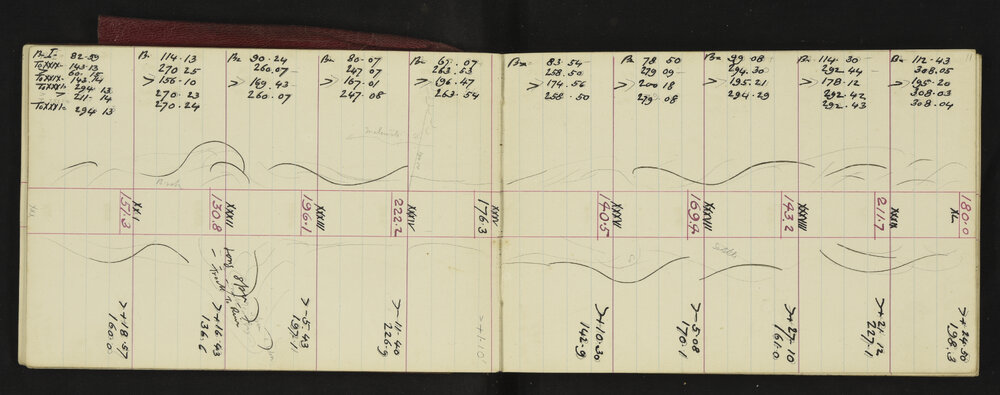 Bn I - 82.59
To XXIX - 143.13
To XXIX - 143.14
To XXXI - 294 13
> 211 - 14
To XXXI - 294 13
Bn 114.13
270 25
> 156-10
270 - 23
270 . 24
Bn 90.24
260.07
> 169.43
260.07
Bn 80-07
247 07
> 167-01
247.08
Bn 67.07
263.53
> 196-47
263.54
Bn - 83-54
258.50
> 174.56
258-50
Bn 78 50
279 09
> 200 18
279 08
Bn 99 08
294.30
> 195.21
294-29
Bn 114. 30
292.44
> 178.12
292.42
292.43
Bn 112-43
308.05
> 195-20
308.03
308.04
11
XXXI
157.3
XXXII
130.8
XXXIII
196.1
XXXIV
222.2
XXXV
176.3
XXXVI
140.5
XXXVII
169.4
XXXVIII
143.2
XXXIX
211.7
XL
180.0
> +18-57
160.0
> +16-43
136.6
> -5.43
197.11
> -11.40
226.9
> +10'
> +10.30
142.9
> -5.08
170.1
> +27-10
161.0
> +21.12
227.1
> +24.50
198.3